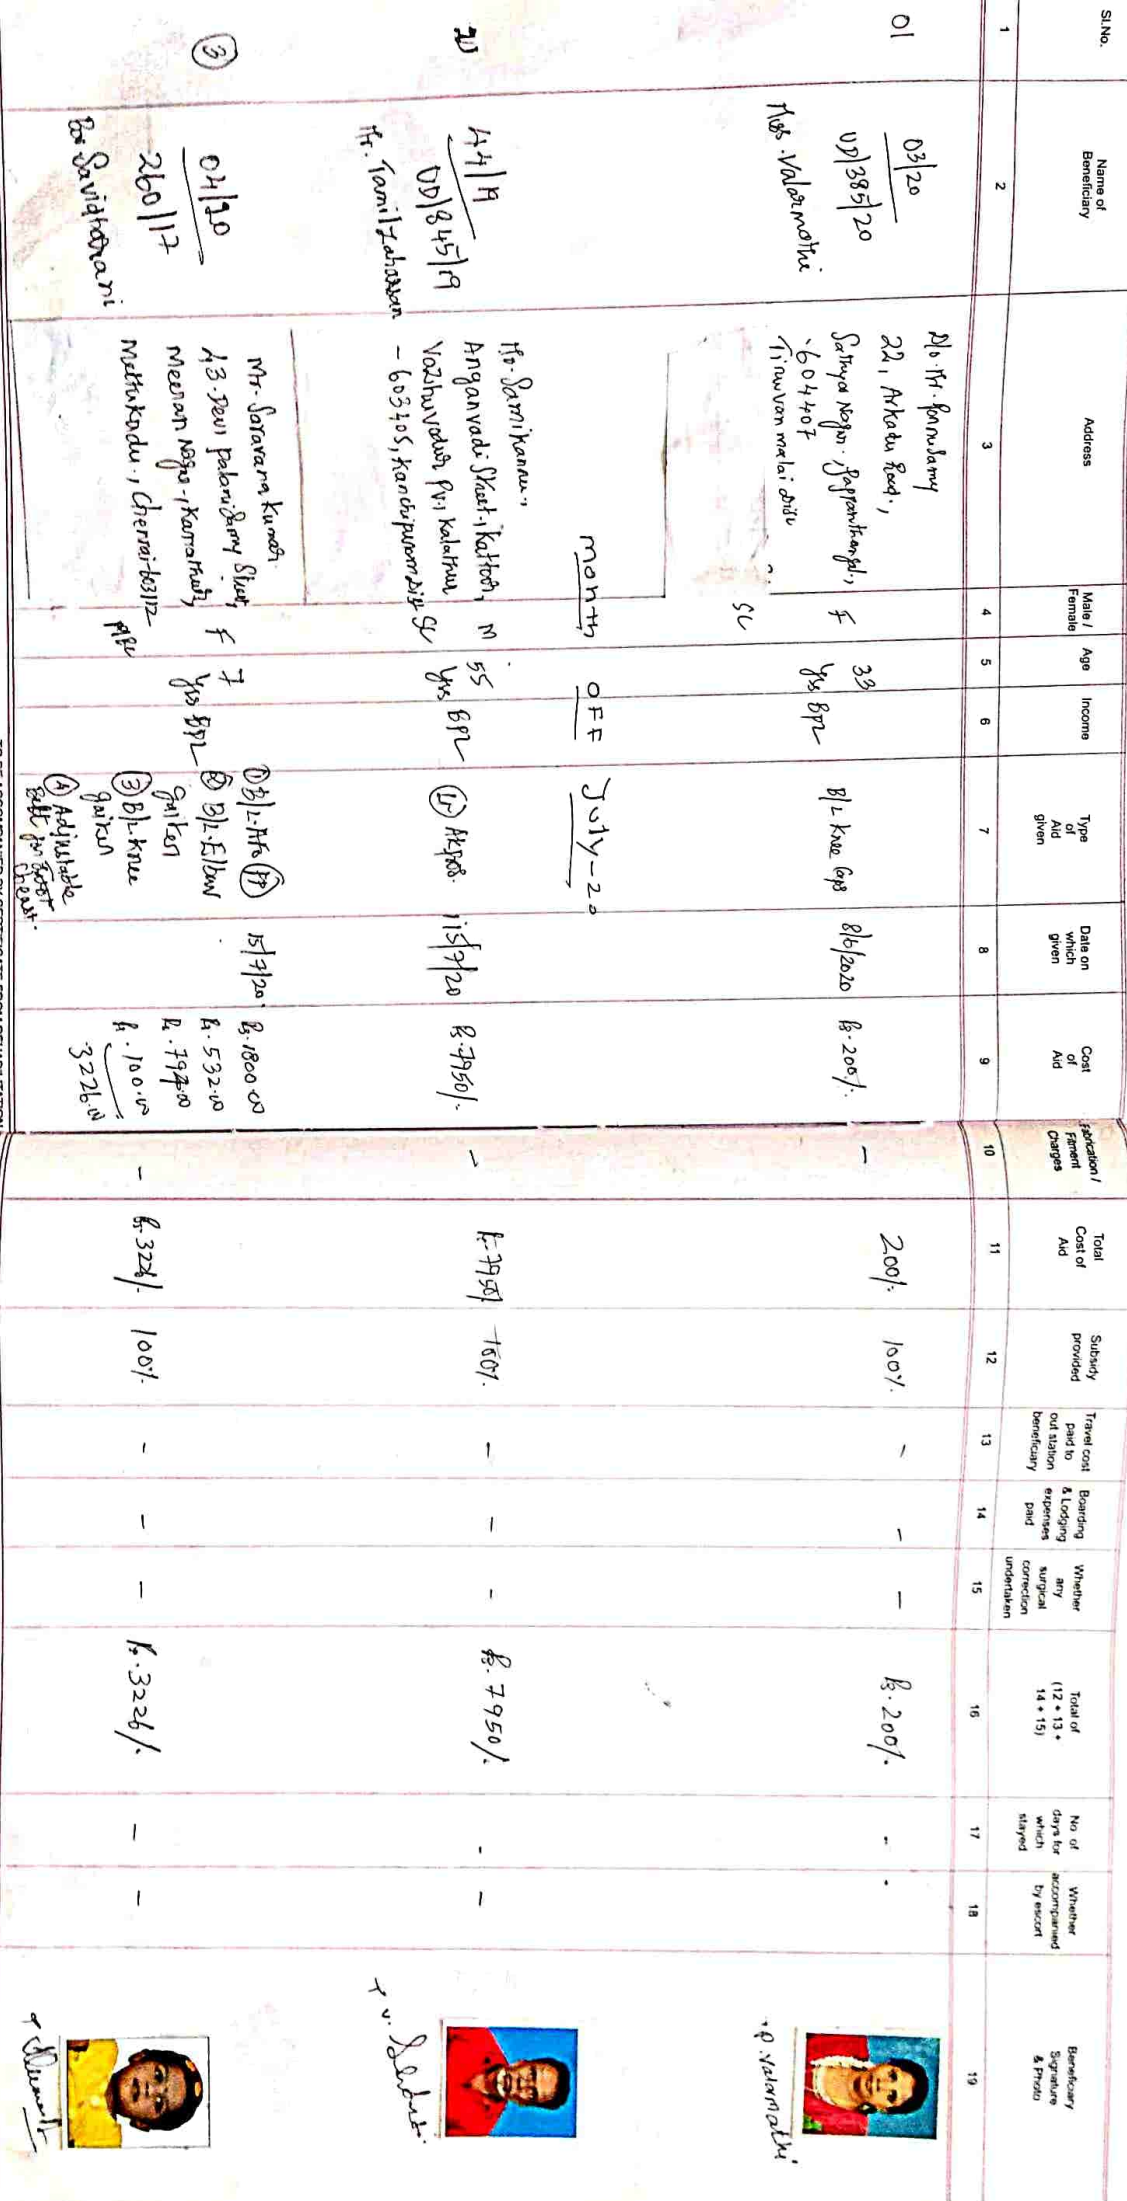 Sl.No.
Name of
Beneficiary
Address
Male /
Female
Age
Income
Type
of
Aid
given
Date on
which
given
Cost
of
Aid
Fabrication /
Fitment
Charges
Total
Cost of
Aid
Subsidy
provided
Travel cost
paid to
out station
beneficiary
Boarding
& Lodging
expenses
paid
Whether
any
surgical
correction
undertaken
Total of
(12 + 13 +
14 + 15)
No of
days for
which
stayed
Whether
accompanied
by escort
Beneficiary
Signature
& Photo
1 2 3 4 5 6 7 8 9 10 11 12 13 14 15 16 17 18 19
01
03/20
UD/385/20
Miss. Valarmathi
D/o. Mr. Ponnusamy
22, Arkadu Road.,
Sathya Nagar.,
604407
Tiruvanmalai
F
SC
33
Yrs
BPL
B/L Knee Caps
8/6/2020
Rs. 200/-
-
200/-
100%
-
-
-
Rs. 200/-
-
-
P. Valarmathi
Month OFF July-20
44/19
UD/845/19
Mr.
Mr. Samikannu.,
Anganvadi Street, Kattoor,
- 603405, Kanchipuram
M
SC
55
Yrs
BPL
15/7/20
Rs. 7950/-
-
Rs. 7950/-
100%
-
-
-
Rs. 7950/-
-
-
3
04/20
260/17
Savidharani
Mr. Saravanakumar.
43. Devi Palanisamy Street,
Meeran Nagar,
Mettukadu., Chennai-603112
F
MBC
7
Yrs
BPL
① B/L. AFO (PP)
② B/L. Elbow
gaiter
③ B/L Knee
gaiter
④ Adjustable
Belt for
Cheast.
15/7/20.
Rs. 1800.00
Rs. 532.00
Rs. 794.00
Rs. 100.00
3226.00
-
Rs. 3226/-
100%
-
-
-
Rs. 3226/-
-
-